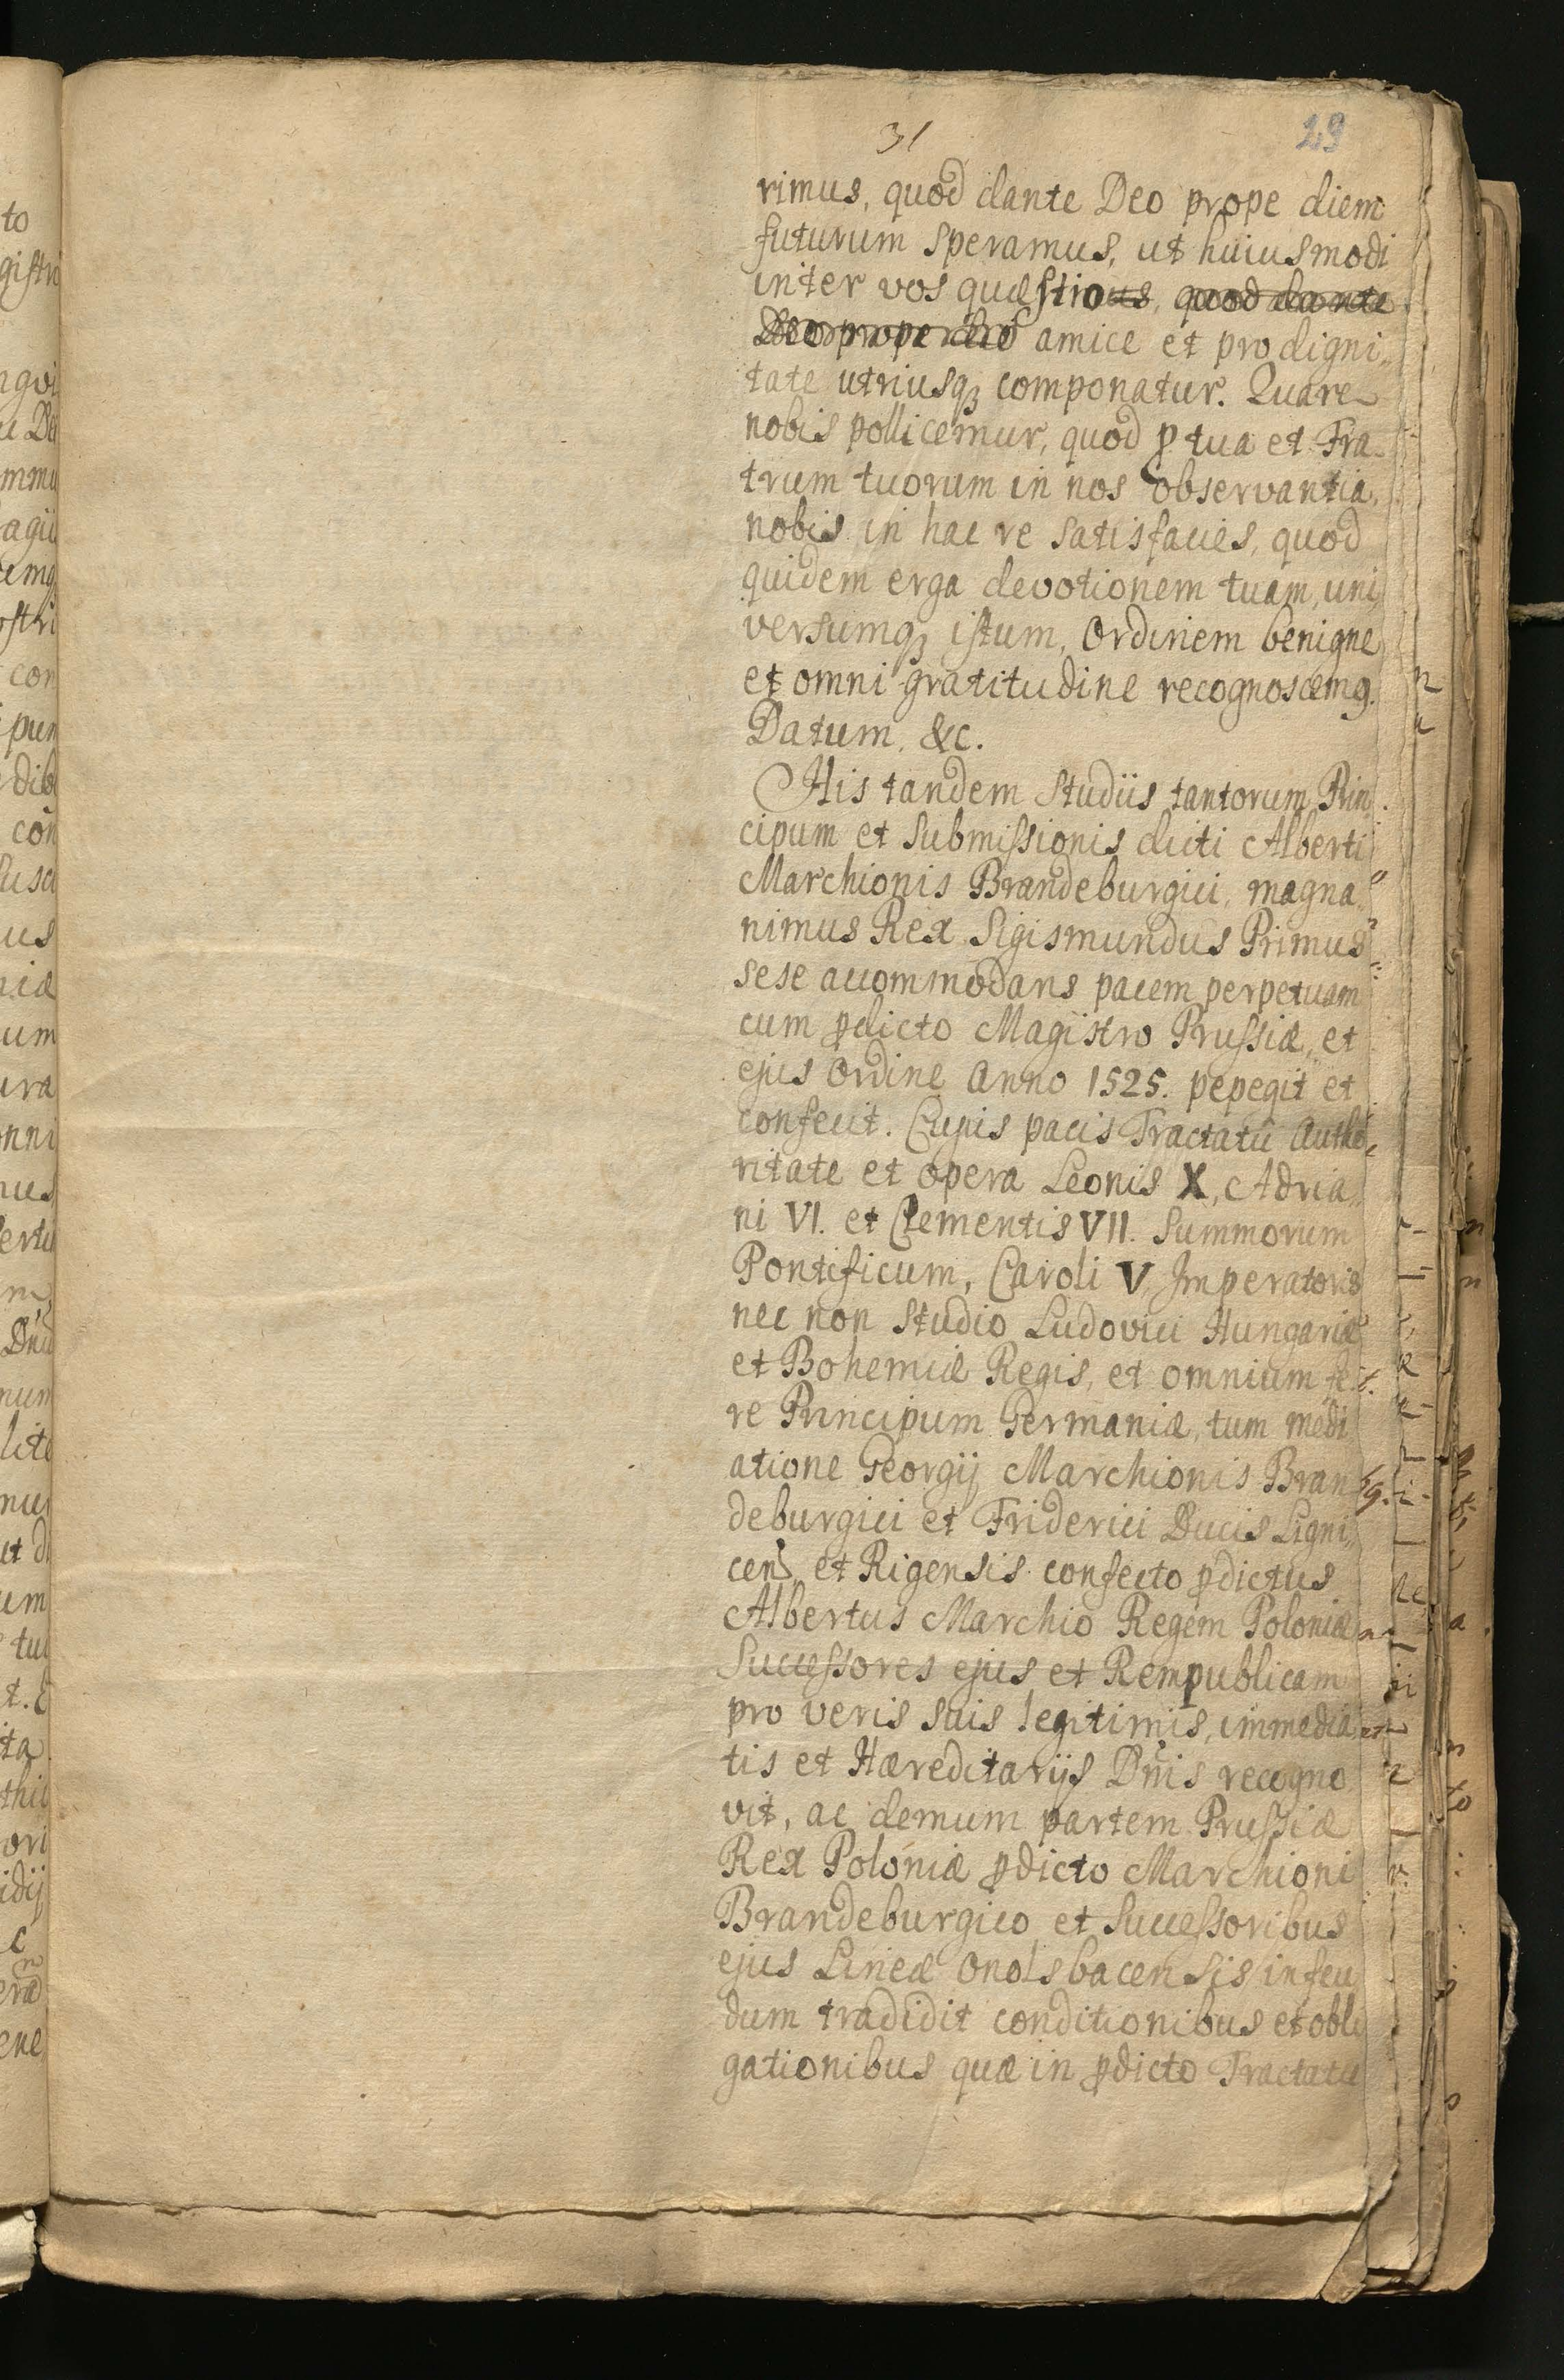 31
29
rimus, quod dante Deo prope diem
futurum speramus, ut huiusmodi
inter vos quæstio, quod dante
Deo prope diē amice et pro digni„
tate utriusqꝫ componatur. Quare
nobis pollicemur, quod ꝓ tua et Fra-
trum tuorum in nos observantia,
nobis in hac re satisfacies, quod
quidem erga devotionem tuam, uni„
versumqꝫ istum, Ordinem benigne
et omni gratitudine recognoscemꝰ.
Datum, &c.
His tandem studiis tantorum Prin
cipum et submissionis dicti Alberti
Marchionis Brandeburgici, magna„
nimus Rex Sigismundus Primus
sese accommodans pacem perpetuam
cum p̄dicto Magistro Prussiæ, et
ejus Ordine Anno 1525. pepegit et
confecit. Cujus pacis Tractatū Autho„
ritate et opera Leonis X, Adria„
ni VI. et Clementis VII. Summorum
Pontificum, Caroli V Imperatoris
nec non studio Ludovici Hungariæ
et Bohemiæ Regis, et omnium fe
re Principum Germaniæ, tum medi
atione Georgij Marchionis Bran
deburgici et Friderici Ducis Ligni„
cens et Rigensis confecto p̄dictus
Albertus Marchio Regem Poloniæ
Successores ejus et Rempublicam
pro veris suis legitimis, immedia
tis et Hæreditarijs Dn̄is recogno
vit, ac demum partem Prussiæ
Rex Poloniæ p̄dicto Marchioni
Brandeburgico et Successoribus
ejus Lineæ Onolsbacensis in feu
dum tradidit conditionibus et obli
gationibus quæ in p̄dicto Tractatu